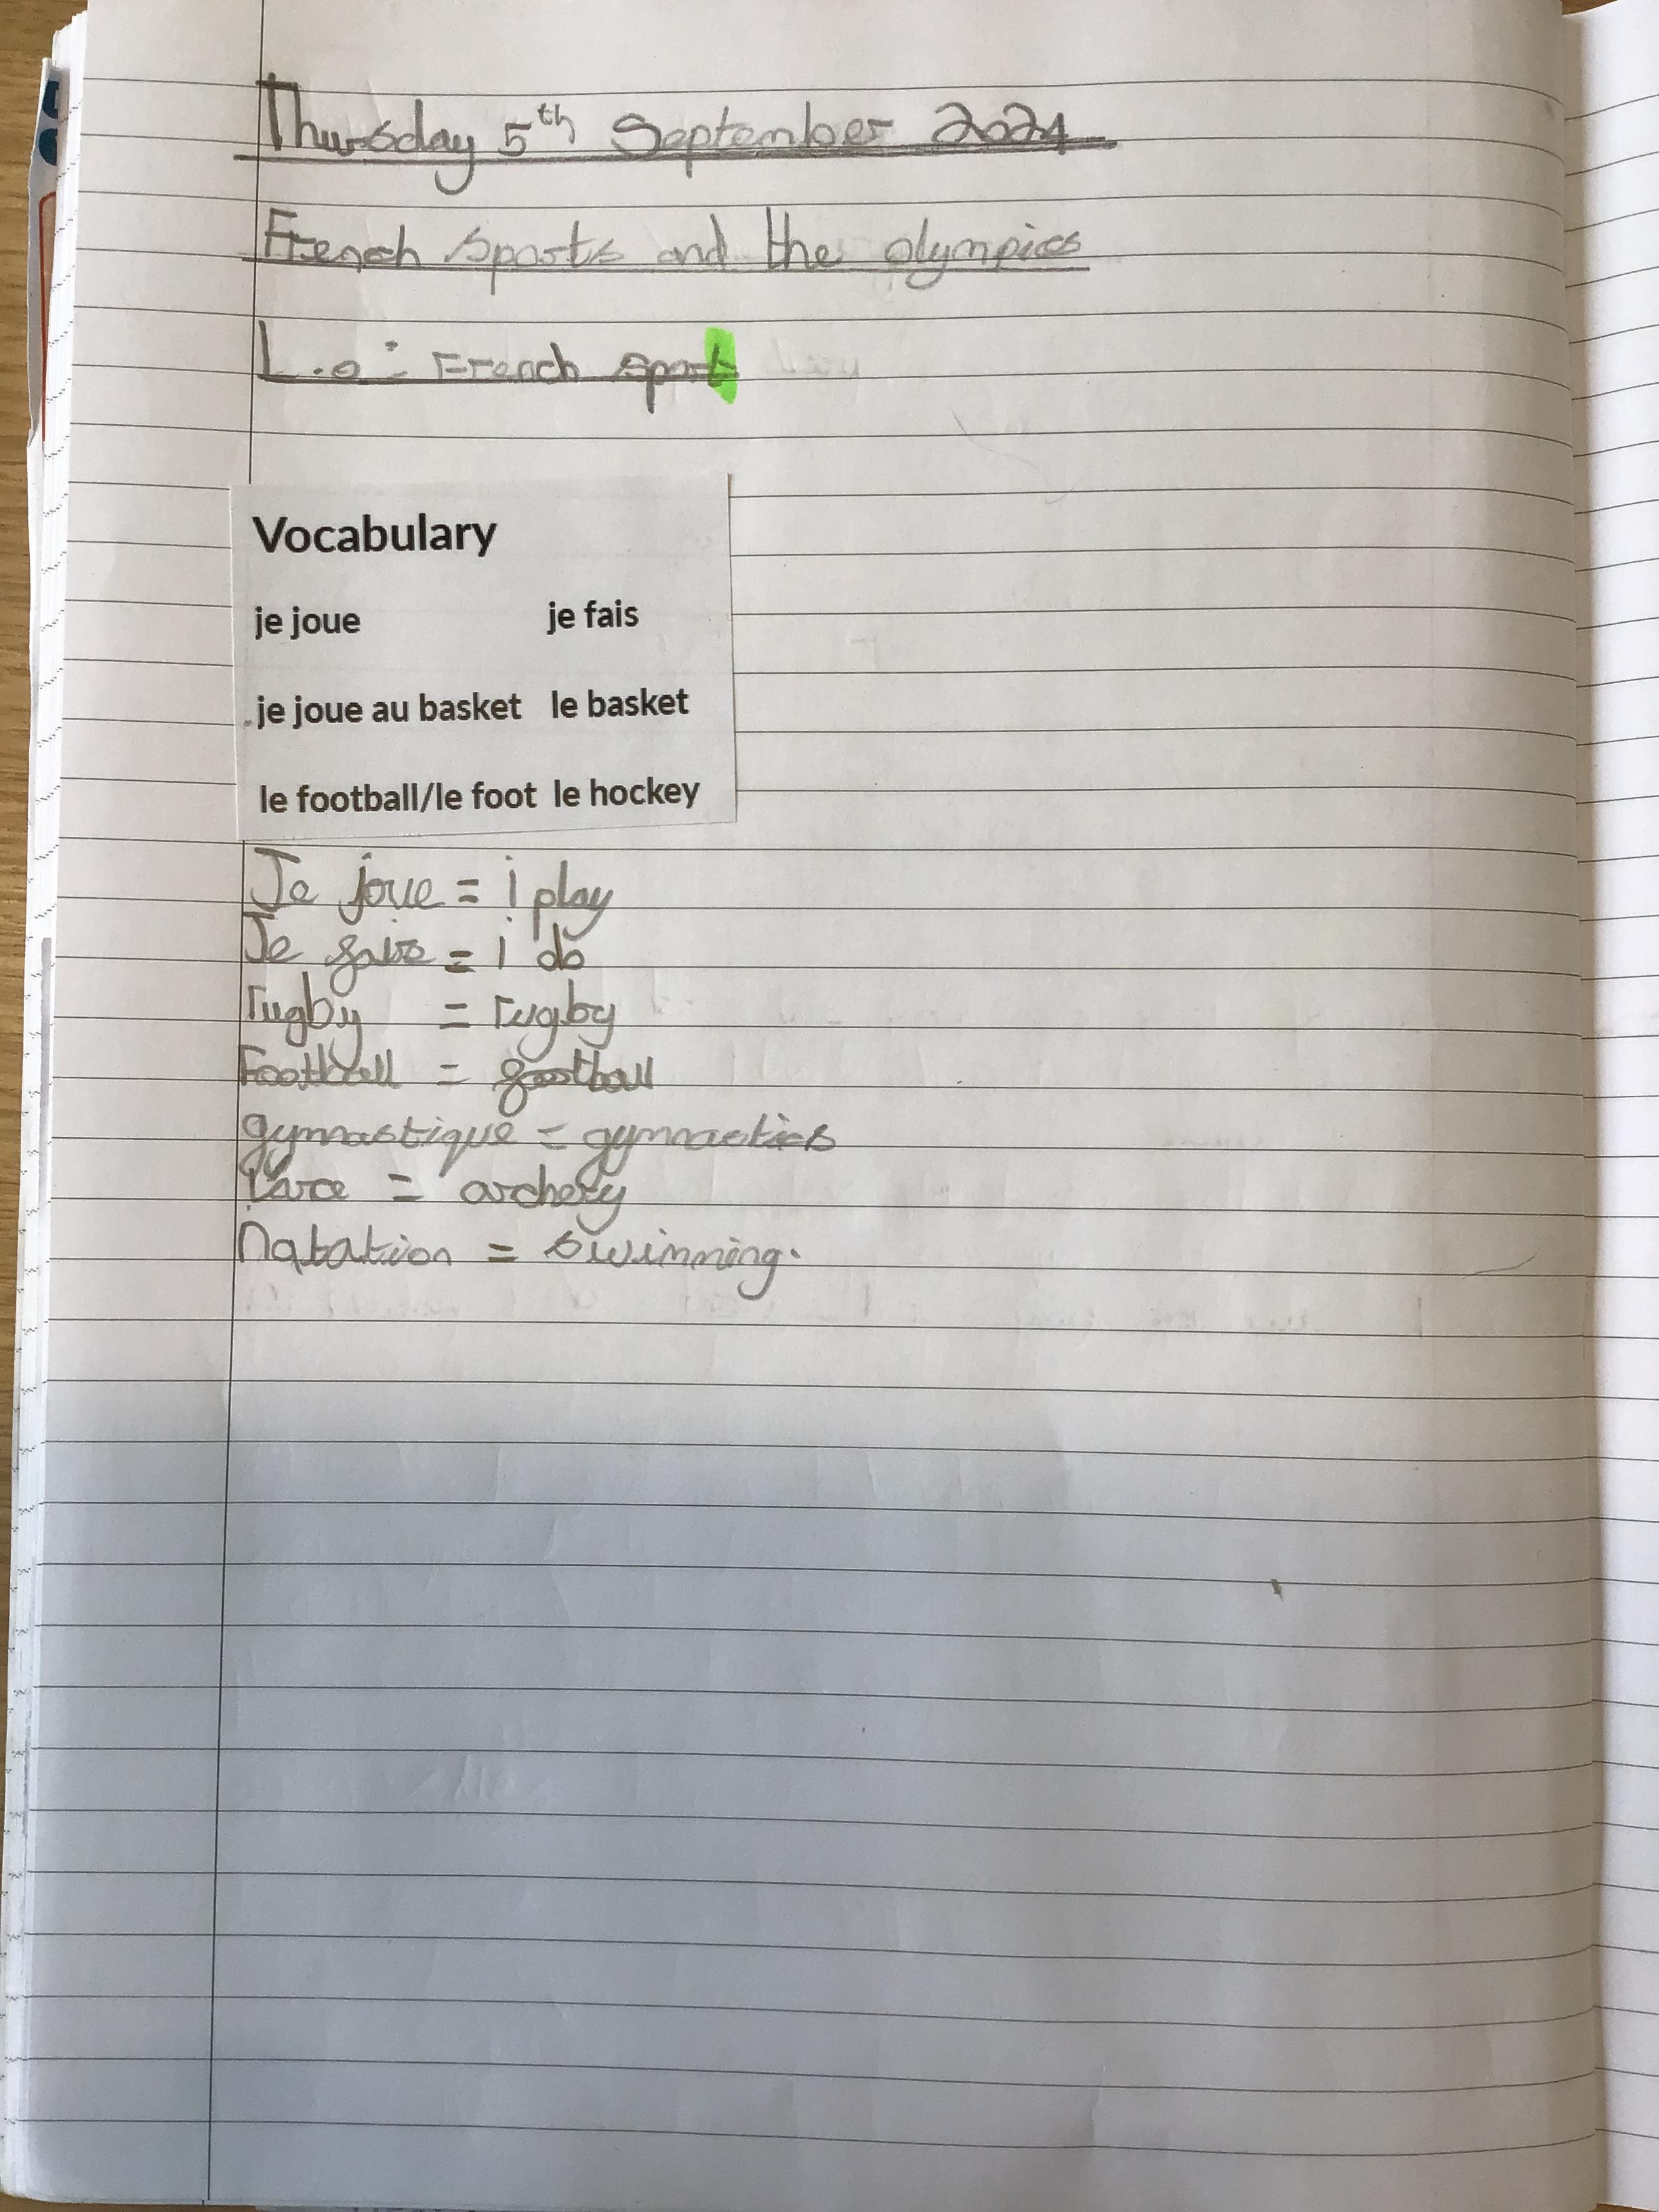 Thursday 5th September 2024
French sports and the olympics
L.o: French sport
Vocabulary
je joue je fais
je joue au basket le basket
le football/le foot le hockey
Je joue = i play
Je fais = i do
rugby = rugby
Football = football
gymnastique = gymnastics
L'arce = archery
Natation = swimming.